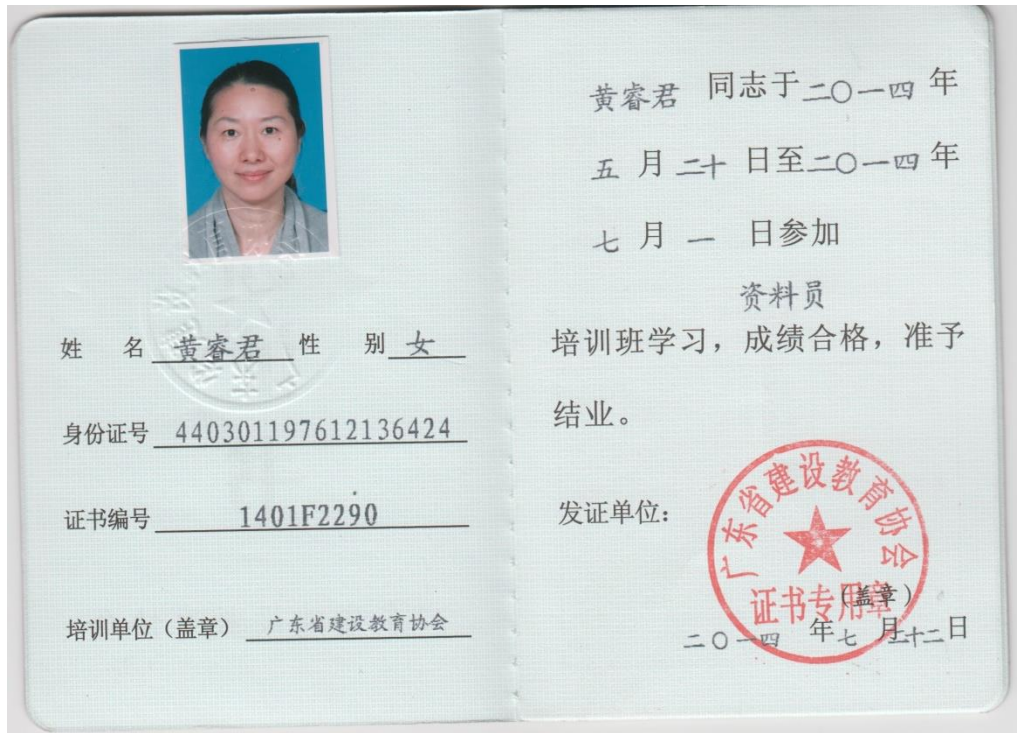 姓 名 黄睿君 性 别 女
身份证号 440301197612136424
证书编号 1401F2290
培训单位（盖章） 广东省建设教育协会
黄睿君 同志于二〇一四 年
五 月 二十 日至二〇一四 年
七 月 一 日参加
资料员
培训班学习，成绩合格，准予
结业。
发证单位：
广东省建设教育协会
证书专用章
（盖章）
二〇一四 年七 月二十二日